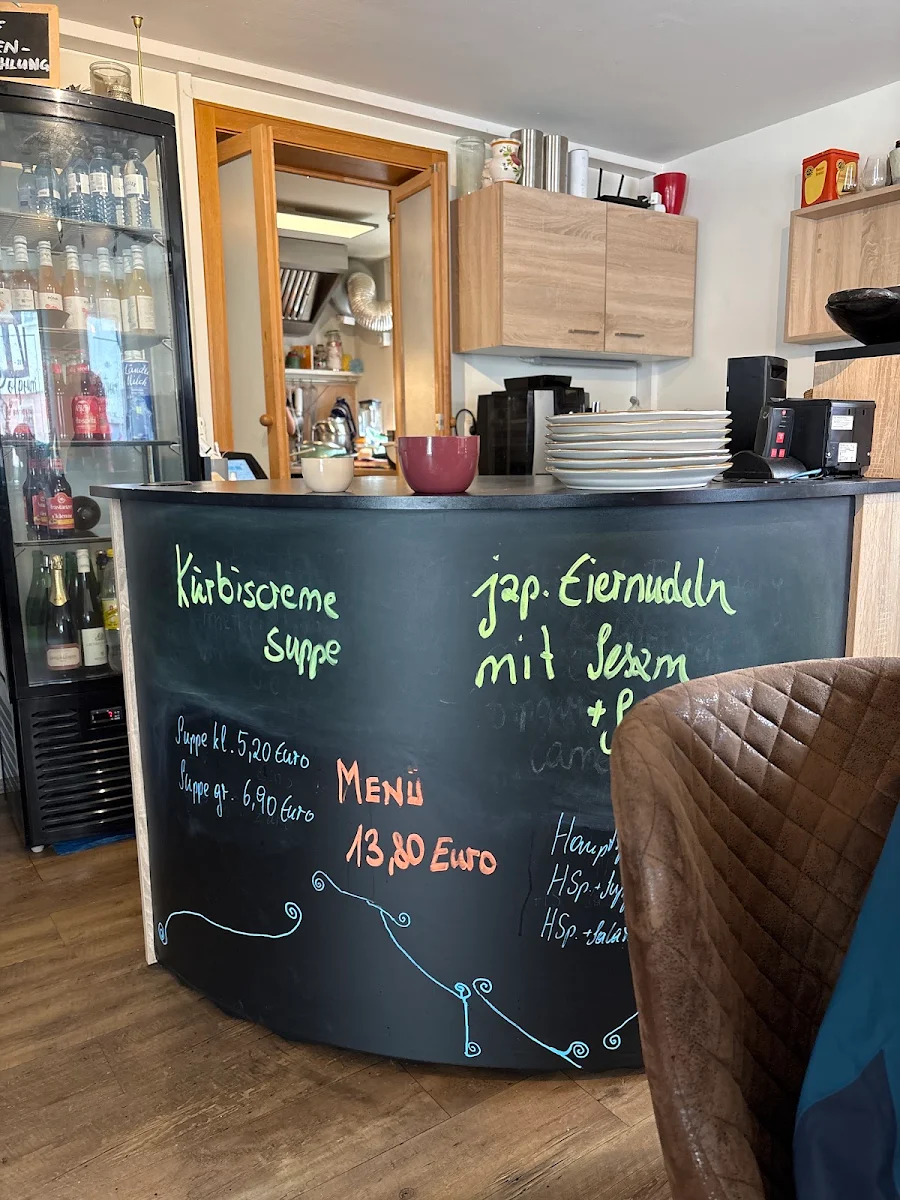 EN-
HLUNG
Kürbiscreme
suppe
jap. Eiernudeln
mit Sesam
+
Suppe kl. 5,20 Euro
Suppe gr. 6,90 Euro
MENÜ
13,80 Euro
HSp. +
HSp. + Salat